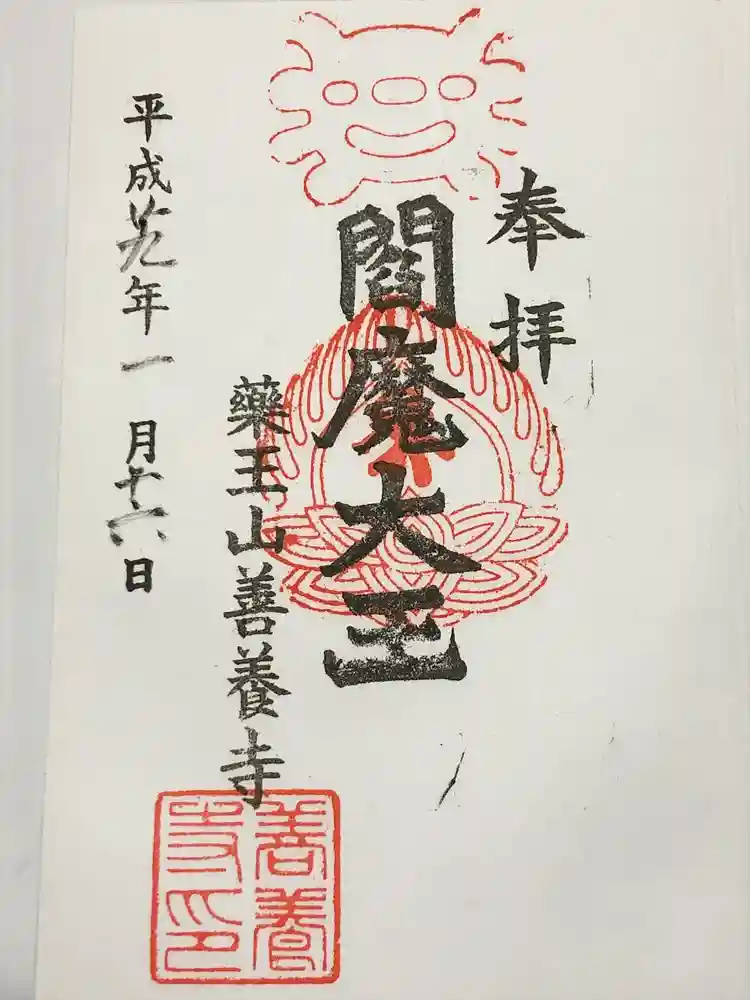 奉拝
閻魔大王
藥王山善養寺
平成廿九年一月十六日
善養寺印